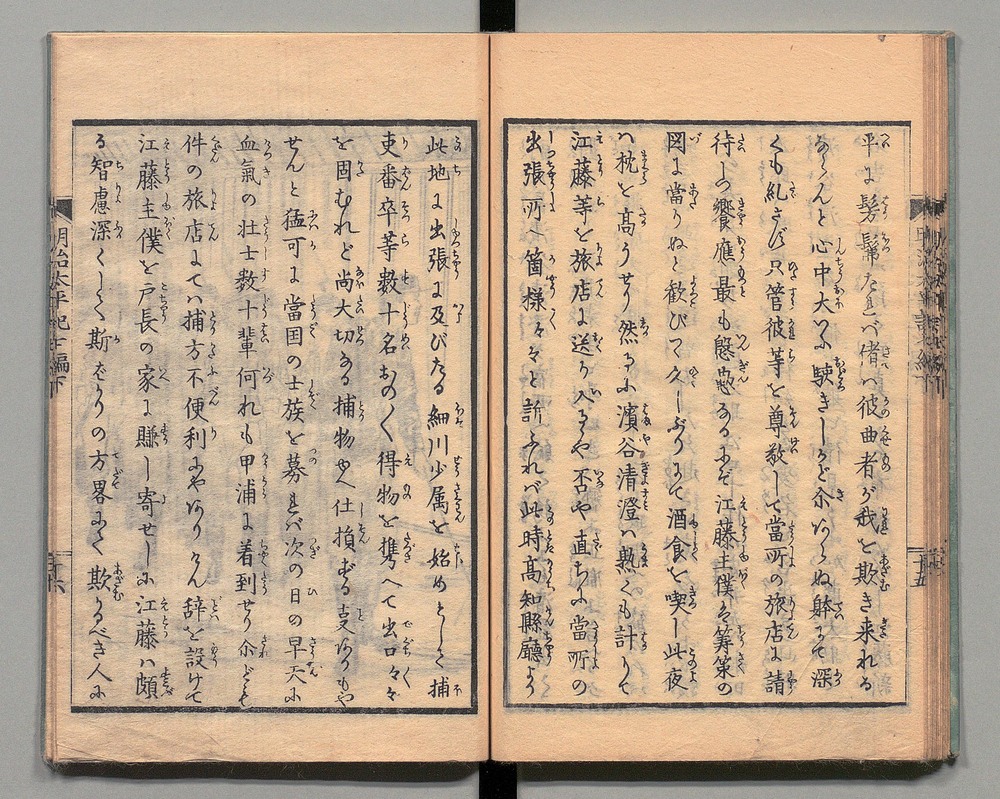 平に髣髴たれバ偖ハ彼曲者が我を欺き来れる
ならんと心中大ひに駭きしかど余りあらぬ躰にて深
くも糺さず只管彼等を尊敬して當所の旅店に請
待しつ饗應最も慇懃なるにぞ江藤主僕ハ籌策の
図に當りぬと歓びて久しぶりにて酒食を喫し此夜
ハ枕を高うせり然るに濱谷清澄ハ熟くも計りて
江藤等を旅店に送り入るや否や直ちに當所の
出張所へ箇様々々と訴ふれバ此時高知縣廳より
此地に出張に及びたる細川少属を始めとして捕
吏番卒等數十名おのく得物を携へて出口々々
を固むれど尚大切なる捕物也仕損ずる事ありもや
せんと猛可に當国の士族を募れバ次の日の早天に
血氣の壮士数十輩何れも甲浦に着到せり尓ども
件の旅店にてハ捕方不便利にやありけん辞を設けて
江藤主僕を戸長の家に賺し寄せしに江藤ハ頗
る智慮深くして斯ばかりの方畧にて欺かるべき人に
明治太平記 七編下